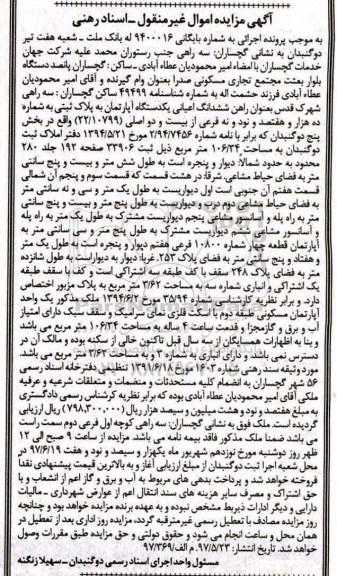 آگهی مزایده اموال غیرمنقول ـ اسناد رهنی
به موجب پرونده اجرائی به شماره بایگانی ۹۴۰۰۰۱۶ له بانک ملت ـ شعبه هفت تیر
دوگنبدان به نشانی گچساران: سه راهی جنب رستوران محمد علیه شرکت جهان
خدمات گچساران با امضاء امیر محمودیان عطاء آبادی ـ ساکن: گچساران پانصد دستگاه
بلوار بعثت مجتمع تجاری مسکونی صدرا بعنوان وام گیرنده و آقای امیر محمودیان
عطاء آبادی فرزند حشمت اله به شماره شناسنامه ۴۹۴۹۹ ساکن گچساران: سه راهی
شهرک قدس بعنوان راهن ششدانگ اعیانی یکدستگاه آپارتمان به پلاک ثبتی به شماره
ده هزار و هفتصد و نود و نه فرعی از بیست و دو اصلی (۲۲/۱۰۷۹۹) واقع در بخش
پنج دوگنبدان که برابر با نامه شماره ۲/۹۴/۷۴۵۶ مورخ ۱۳۹۴/۵/۲۱ دفتر املاک ثبت
دوگنبدان به مساحت ۱۰۶/۳۴ متر مربع ذیل ثبت ۳۳۹۰۶ صفحه ۱۹۲ جلد ۲۸۰
محدود به حدود شمالاً: دیوار و پنجره است به طول شش متر و بیست و پنج سانتی
متر به فضای حیاط مشاعی. شرقاً: در هشت قسمت که قسمت سوم و پنجم آن شمالی
قسمت هفتم آن جنوبی است اول دیواریست به طول یک متر و سی و نه سانتی متر
به فضای حیاط مشاعی دوم درب و دیواریست به طول پنج متر و بیست و پنج سانتی
متر به راه پله و آسانسور مشاعی پنجم دیواریست مشترک به طول یک متر به راه پله
و آسانسور مشاعی هشتم دیواریست مشترک به طول پنج متر و سی سانتی متر به
آپارتمان قطعه چهار شماره ۱۰۸۰۰ فرعی هفتم دیوار و پنجره است به طول یک متر
و هفتاد و پنج سانتی متر به فضای پلاک ۲۵۳. غرباً: دیوار به دیواراست به طول شانزده
متر به فضای پلاک ۲۴۸ سقف با کف طبقه سه اشتراکی است و کف با سقف طبقه
یک اشتراکی و انباری شماره سه به مساحت ۳/۶۲ متر مربع به پلاک مزبور اختصاص
دارد. و برابر نظریه کارشناسی شماره ۳۵/۹۴ مورخ ۱۳۹۴/۶/۲ ملک مذکور یک واحد
آپارتمان مسکونی طبقه دوم با اسکلت فلزی نمای سرامیک و سقف سبک دارای امتیاز
آب و برق و گازمجزا و قدمت ساخت ۴ ساله به مساحت ۱۰۶/۳۴ متر مربع می باشد
و بنا به اظهارات همسایگان از سه سال قبل تاکنون خالی از سکنه بوده و مالک آن در
دسترس نمی باشد و دارای انباری به شماره ۳ و به مساحت ۳/۶۲ متر مربع می باشد.
مورد وثیقه سند رهنی شماره ۱۶۰۳ مورخ ۱۳۹۱/۶/۱۸ تنظیمی دفترخانه اسناد رسمی
۵۶ شهر گچساران به انضمام کلیه مستحدثات و منضمات و متعلقات شرعیه و عرفیه
ملکی آقای امیر محمودیان عطاء آبادی بوده که برابر نظریه کارشناس رسمی دادگستری
به مبلغ هفتصد و نود و هشت میلیون و سیصد هزار ریال (۷۹۸,۳۰۰,۰۰۰) ریال ارزیابی
گردیده است. ملک فوق به نشانی گچساران: سه راهی کوچه اول فرعی دوم سمت راست
می باشد ضمنا ملک مذکور فاقد بیمه نامه می باشد. مزایده از ساعت ۹ صبح الی ۱۲
ظهر روز دوشنبه مورخ نوزدهم شهریور ماه یکهزار و سیصد و نود و هفت ۹۷/۶/۱۹ در
محل شعبه اجرا ثبت دوگنبدان از مبلغ ارزیابی آغاز و به بالاترین قیمت پیشنهادی نقدا
فروخته خواهد شد و پرداخت بدهی های مربوط به آب و برق و گاز اعم از انشعاب و یا
حق اشتراک و مصرف سایر هزینه های سند انتقال اعم از عوارض شهرداری ـ مالیات
دارایی و دیگر ادارات ذیربط مشخص نبوده و به عهده برنده مزایده خواهد بود و چنانچه
روز مزایده مصادف با تعطیل رسمی غیرمترقبه گردد، مزایده روز اداری بعد از تعطیل در
همان محل و ساعت انجام می شود و حقوق دولتی و حق مزایده طبق مقررات وصول
خواهد شد. تاریخ انتشار: ۹۷/۵/۲۳. م الف/۹۷/۳۶۹
مسئول واحد اجرای اسناد رسمی دوگنبدان ـ سهیلا زنگنه